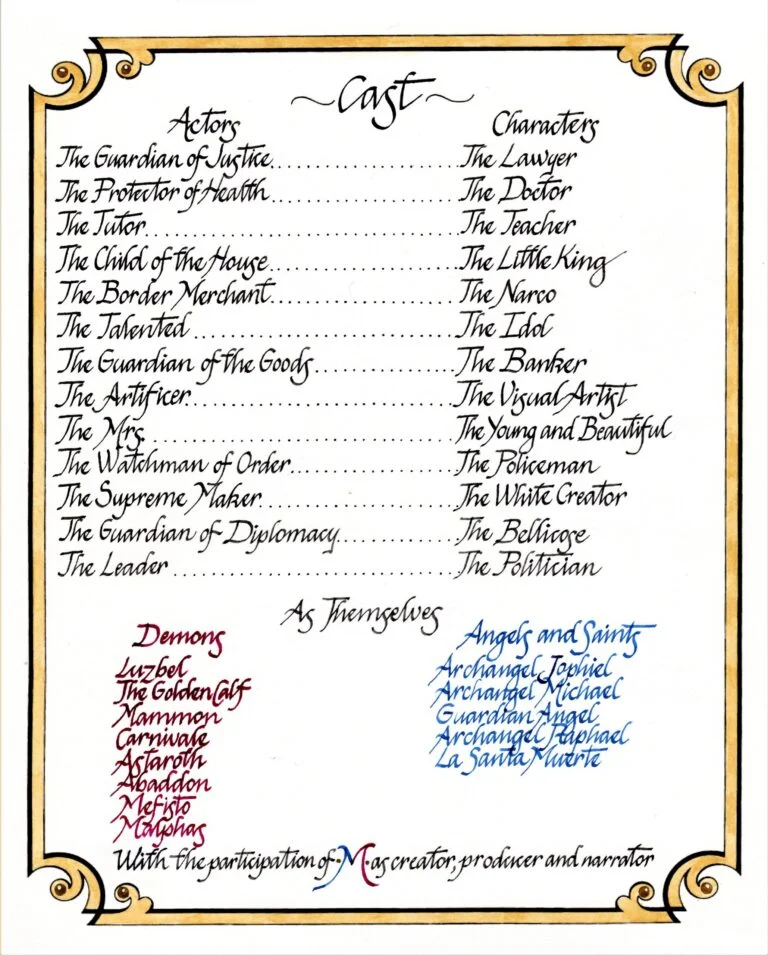 ~Cast~
Actors Characters
The Guardian of Justice..........................The Lawyer
The Protector of Health..........................The Doctor
The Tutor..........................................The Teacher
The Child of the House..........................The Little King
The Border Merchant..........................The Narco
The Talented ....................................The Idol
The Guardian of the Goods....................The Banker
The Artificer....................................The Visual Artist
The Mrs. ........................................The Young and Beautiful
The Watchman of Order......................The Policeman
The Supreme Maker..........................The White Creator
The Guardian of Diplomacy................The Bellicose
The Leader ......................................The Politician
As Themselves
Demons
Luzbel
The Golden Calf
Mammon
Carnivale
Astaroth
Abaddon
Mefisto
Malphas
Angels and Saints
Archangel Jophiel
Archangel Michael
Guardian Angel
Archangel Raphael
La Santa Muerte
With the participation of ·M· as creator, producer and narrator